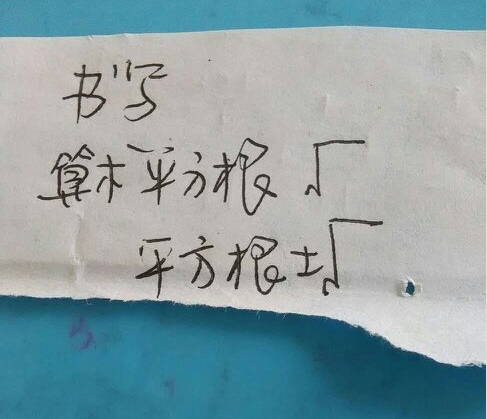 书写
算术平方根 √
平方根 ±√